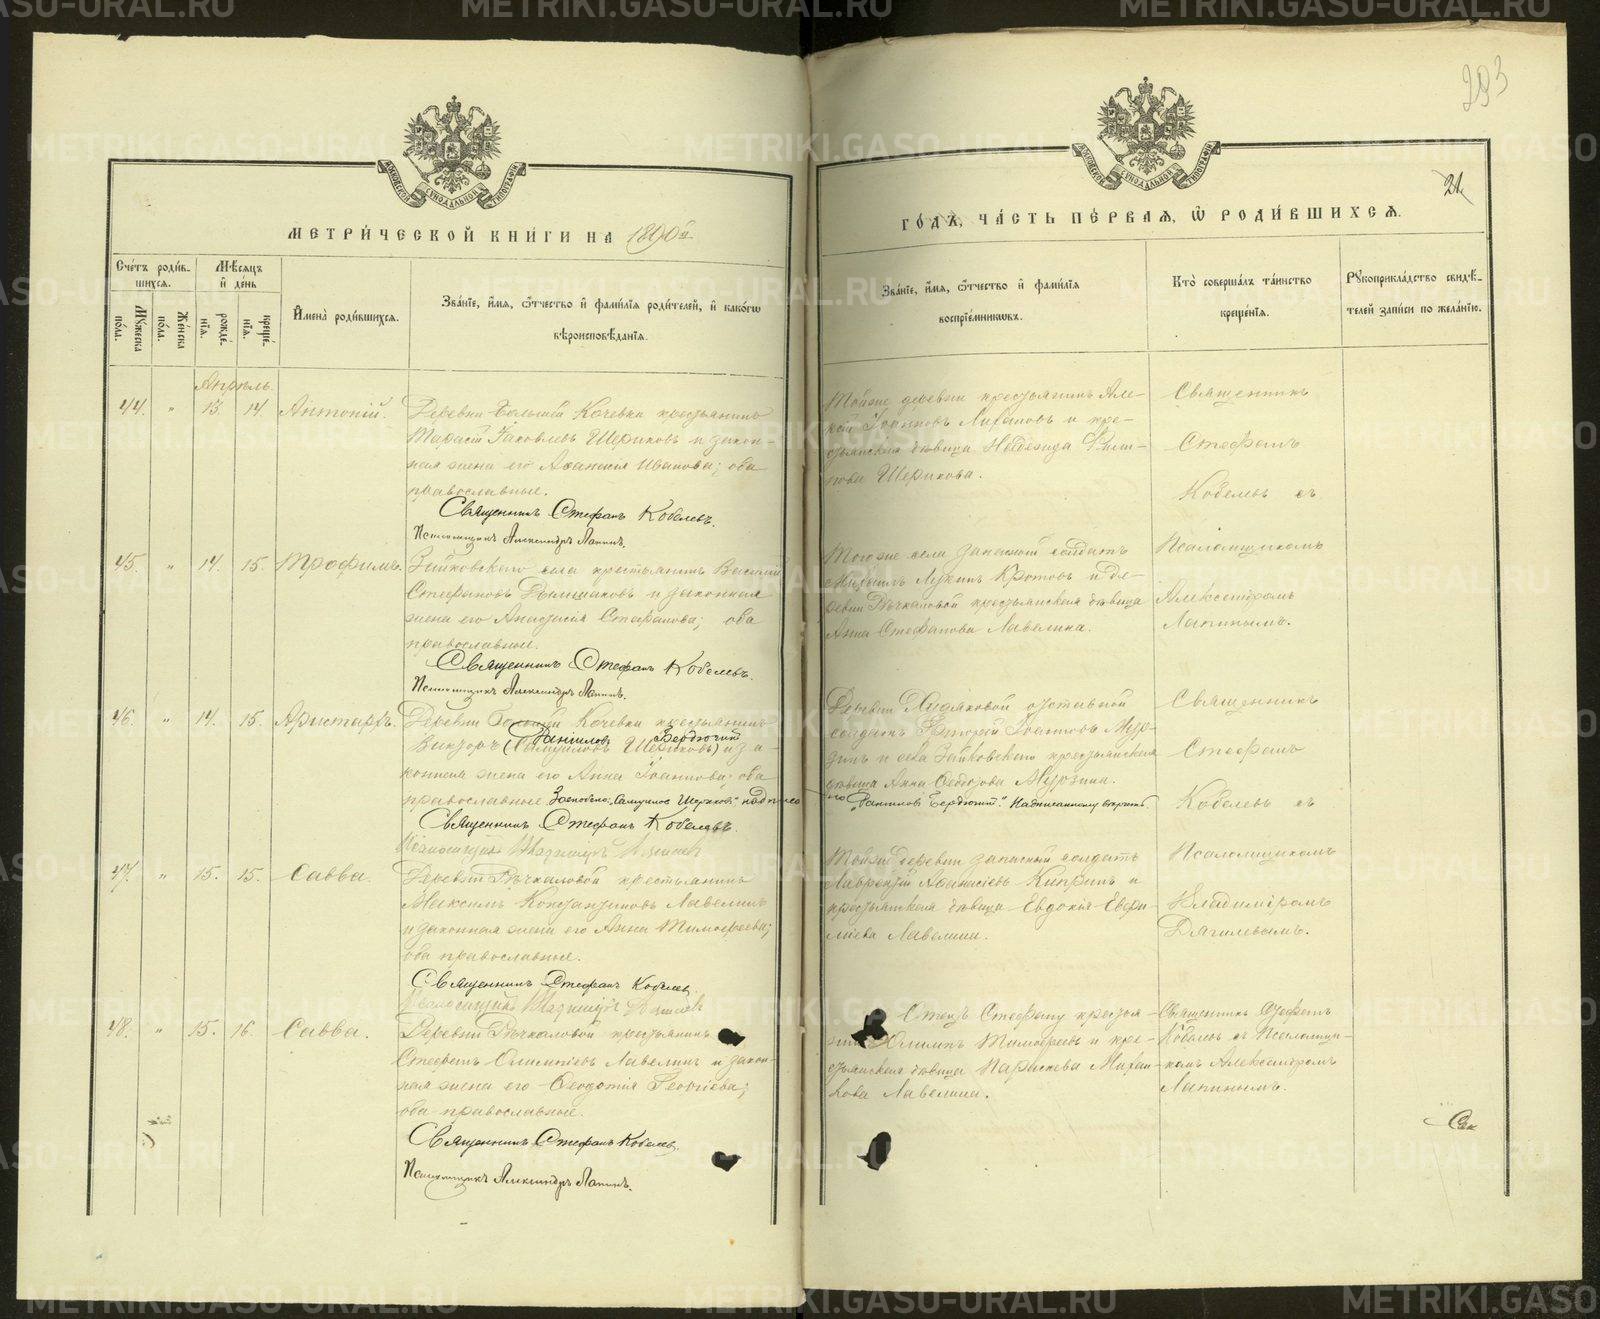 METRIKI.GASO-URAL.RU
293
21
МЕТРИ́ЧЕСКОЙ КНИ́ГИ НА 1890й
ГО́ДЪ, ЧА́СТЬ ПЕ́РВАЯ, Ѽ РОДИ́ВШИХСЯ.
Сче́тъ роди́вшихся.
Мꙋ́жеска по́ла.
Же́нска по́ла.
Мѣ́сяцъ и҆ де́нь
рожде́нїя.
креще́нїя.
И҆мена̀ роди́вшихся.
Зва́нїе, и҆́мя, ѻ҆́тчество и҆ фами́лїя роди́телей, и҆ како́гѡ
вѣроисповѣ́данїя.
Зва́нїе, и҆́мя, ѻ҆́тчество и҆ фами́лїя
воспрїе́мникѡвъ.
Кто̀ соверша́лъ та́инство
креще́нїя.
Рꙋкоприкла́дство свидѣ́-
телей за́писи по жела́нїю.
Апрѣль.
44. " 13. 14. Антоній.
Деревни Большой Кочевки крестьянинъ
Тарасій Іаковлевъ Шериковъ и закон-
ная жена его Аѳанасія Иванова; оба
православные.
Священникъ Стефанъ Кобелевъ.
Псаломщикъ Александръ Лапинъ.
Тойже деревни крестьянинъ Але-
ксій Іоанновъ
крестьянская дѣвица Надежда Филип-
пова Шерикова.
Священникъ
Стефанъ
Кобелевъ съ
45. " 14. 15. Трофимъ.
Зайковскаго села крестьянинъ Василій
Стефановъ и законная
жена его Анастасія Стефанова; оба
православные.
Священникъ Стефанъ Кобелевъ.
Псаломщикъ Александръ Лапинъ.
Тогоже села запасный солдатъ
Михаилъ Лукинъ Кротовъ и де-
ревни Рѣчкаловой крестьянская дѣвица
Анна Стефанова Лавелина.
Псаломщикомъ
Александромъ
Лапинымъ.
46. " 14. 15. Аристархъ.
Деревни Большой Кочевки крестьянинъ
Даниловъ Бердюгинъ
Викторъ (Самуиловъ Шериковъ) и за-
конная жена его Анна Іоаннова; оба
православные. Зачеркнуто: „Самуиловъ Шериковъ" надписано
Священникъ Стефанъ Кобелевъ.
Псаломщикъ Владиміръ Дягилевъ
Деревни отставной
солдатъ Григорій Іоанновъ Мур-
зинъ и села Зайковскаго крестьянская
дѣвица Анна Ѳеодорова Мурзина.
„Даниловъ Бердюгинъ". Надписанному вѣрить
Священникъ
Стефанъ
Кобелевъ съ
47. " 15. 15. Савва.
Деревни Рѣчкаловой крестьянинъ
Максимъ Константиновъ Лавелинъ
и законная жена его Анна Тимофеева;
оба православные.
Священникъ Стефанъ Кобелевъ
Псаломщикъ Владиміръ Дягилевъ
Тойже деревни запасный солдатъ
Лаврентій Аѳанасіевъ Кипринъ и
крестьянская дѣвица Евдокія
Лавелина.
Псаломщикомъ
Владиміромъ
Дягилевымъ.
48. " 15. 16. Савва.
Деревни Рѣчкаловой крестьянинъ
Стефанъ Олимпіевъ Лавелинъ и закон-
ная жена его Ѳеодотія Георгіева;
оба православные.
Священникъ Стефанъ Кобелевъ.
Псаломщикъ Александръ Лапинъ.
Отецъ Стефану крестья-
нинъ Олимпъ Тимофеевъ и кре-
стьянская дѣвица Параскева Михай-
лова Лавелина.
Священникъ Стефанъ
Кобелевъ съ Псаломщи-
комъ Александромъ
Лапинымъ.